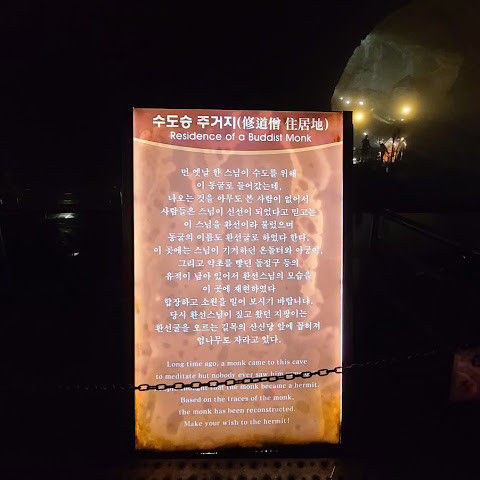 수도승 주거지(修道僧 住居地)
Residence of a Buddist Monk
먼 옛날 한 스님이 수도를 위해
이 동굴로 들어갔는데,
나오는 것을 아무도 본 사람이 없어서
사람들은 스님이 신선이 되었다고 믿고는
이 스님을 환선이라 불렀으며
동굴의 이름도 환선굴로 하였다 한다.
이 곳에는 스님이 기거하던 온돌터와 아궁이,
그리고 약초를 빻던 돌절구 등의
유적이 남아 있어서 환선스님의 모습을
이 곳에 재현하였다
합장하고 소원을 빌어 보시기 바랍니다.
당시 환선스님이 짚고 왔던 지팡이는
환선굴을 오르는 길목의 산신당 앞에 꽂혀져
엄나무로 자라고 있다.
Long time ago, a monk came to this cave
to meditate but nobody ever saw him
that the monk became a hermit.
Based on the traces of the monk,
the monk has been reconstructed.
Make your wish to the hermit!